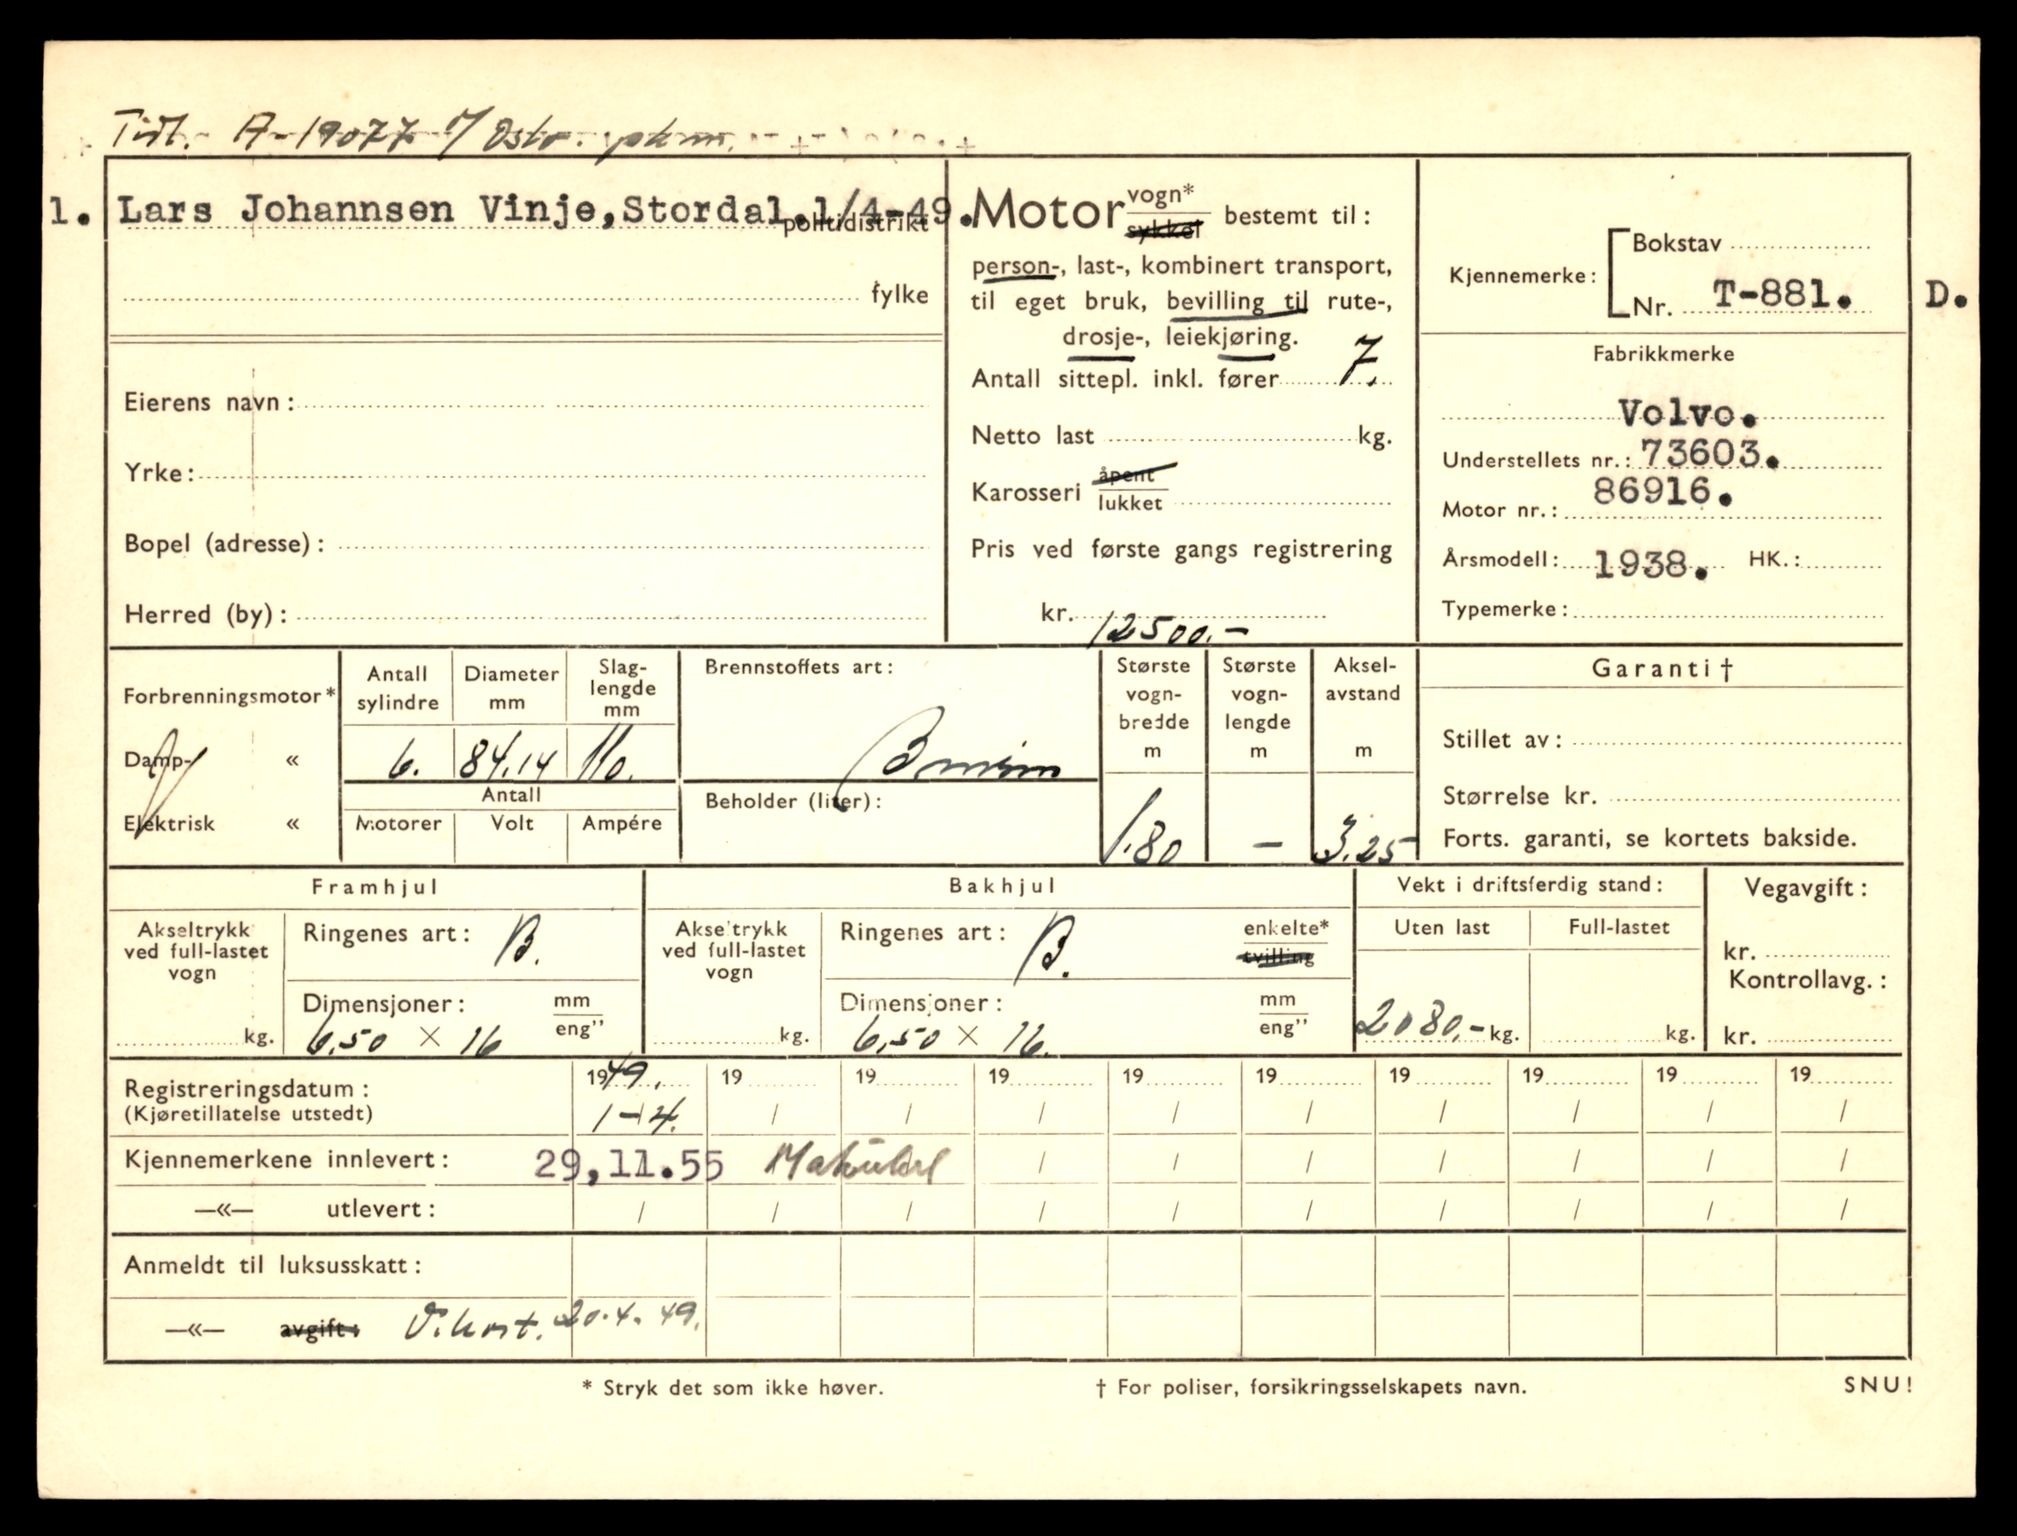 Tidl. A-19077 i/ Oslo. pkm.
1. Lars Johannsen Vinje, Stordal. 1/4-49.
politidistrikt
fylke
Eierens navn:
Yrke:
Bopel (adresse):
Herred (by):
Motor vogn* sykkel bestemt til:
person-, last-, kombinert transport,
til eget bruk, bevilling til rute-,
drosje-, leiekjøring.
Antall sittepl. inkl. fører 7.
Netto last kg.
Karosseri åpent lukket
Pris ved første gangs registrering
kr. 12500.-
Kjennemerke: Bokstav
Nr. T-881. D.
Fabrikkmerke
Volvo.
Understellets nr.: 73603.
Motor nr.: 86916.
Årsmodell: 1938. HK.:
Typemerke:
Forbrenningsmotor*
Damp- «
Elektrisk «
Antall sylindre
6.
Diameter mm
84.14
Slag-
lengde
mm
110.
Antall
Motorer Volt Ampére
Brennstoffets art:
Bensin
Beholder (liter):
Største
vogn-
bredde
m
1.80
Største
vogn-
lengde
m
-
Aksel-
avstand
m
3.25
Garanti †
Stillet av:
Størrelse kr.
Forts. garanti, se kortets bakside.
Framhjul
Akseltrykk
ved full-lastet
vogn
kg.
Ringenes art: B.
Dimensjoner: mm eng”
6.50 × 16
Bakhjul
Akseltrykk
ved full-lastet
vogn
kg.
Ringenes art: B. enkelte* tvilling
Dimensjoner: mm eng”
6.50 × 16.
Vekt i driftsferdig stand:
Uten last Full-lastet
2080.- kg. kg.
Vegavgift:
kr.
Kontrollavg.:
kr.
Registreringsdatum: 1949. 19 19 19 19 19 19 19 19 19
(Kjøretillatelse utstedt) 1-4. / / / / / / / / /
Kjennemerkene innlevert: 29,11.55 Makulert / / / / / / /
—«— utlevert: / / / / / / / / / /
Anmeldt til luksusskatt:
—«— avgift: V.kort. 20.4.49.
* Stryk det som ikke høver. † For poliser, forsikringsselskapets navn. SNU!